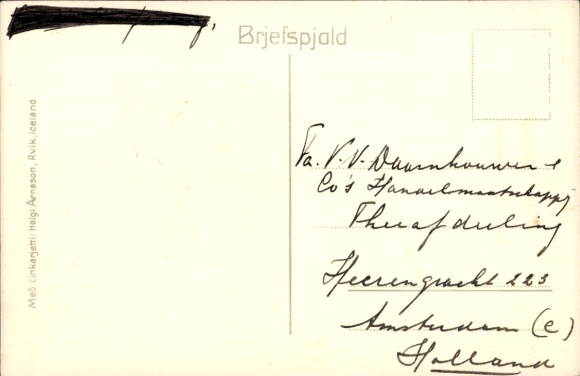 Brjefspjald
Með einkarjetti: Helgi Arnason, Rvik, Iceland
Fa. V.V. Daarnhouwer &
Co's Handelmaatschappij
Theeafdeeling
Heerengracht 223
Amsterdam (C)
Holland